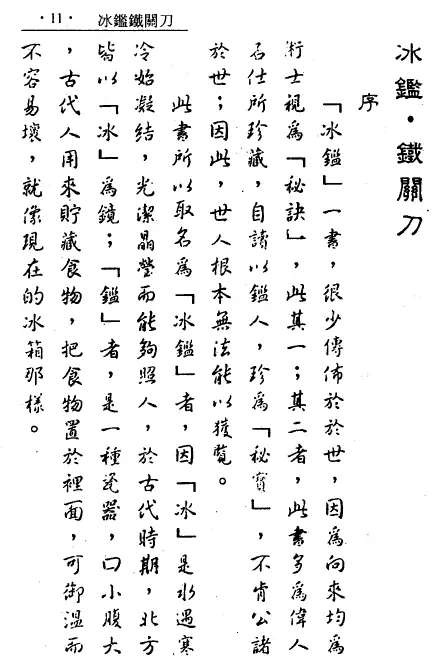 ·11· 冰鑑鐵關刀
冰鑑·鐵關刀
序
「冰鑑」一書，很少傳佈於於世，因為向來均為
術士視為「秘訣」，此其一；其二者，此書多為偉人
名仕所珍藏，自讀以鑑人，珍為「秘寶」，不肯公諸
於世；因此，世人根本無法能以獲覽。
此書所以取名為「冰鑑」者，因「冰」是水遇寒
冷始凝結，光潔晶瑩而能夠照人，於古代時期，北方
皆以「冰」為鏡；「鑑」者，是一種瓷器，口小腹大
，古代人用來貯藏食物，把食物置於裡面，可御溫而
不容易壞，就像現在的冰箱那樣。